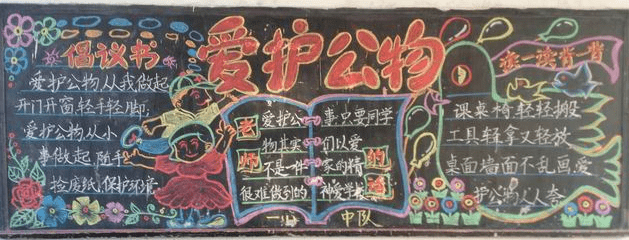 爱护公物
倡议书
爱护公物从我做起
开门开窗轻手轻脚
爱护公物从小
事做起 随手
捡废纸,保护环境
老师
爱护公
物其实
不是一件
很难做到的
事只要同学
们以爱
家的精
神爱学校
一
中队
读一读背一背
课桌椅轻轻搬
工具轻拿又轻放
桌面墙面不乱画爱
护公物人人夸